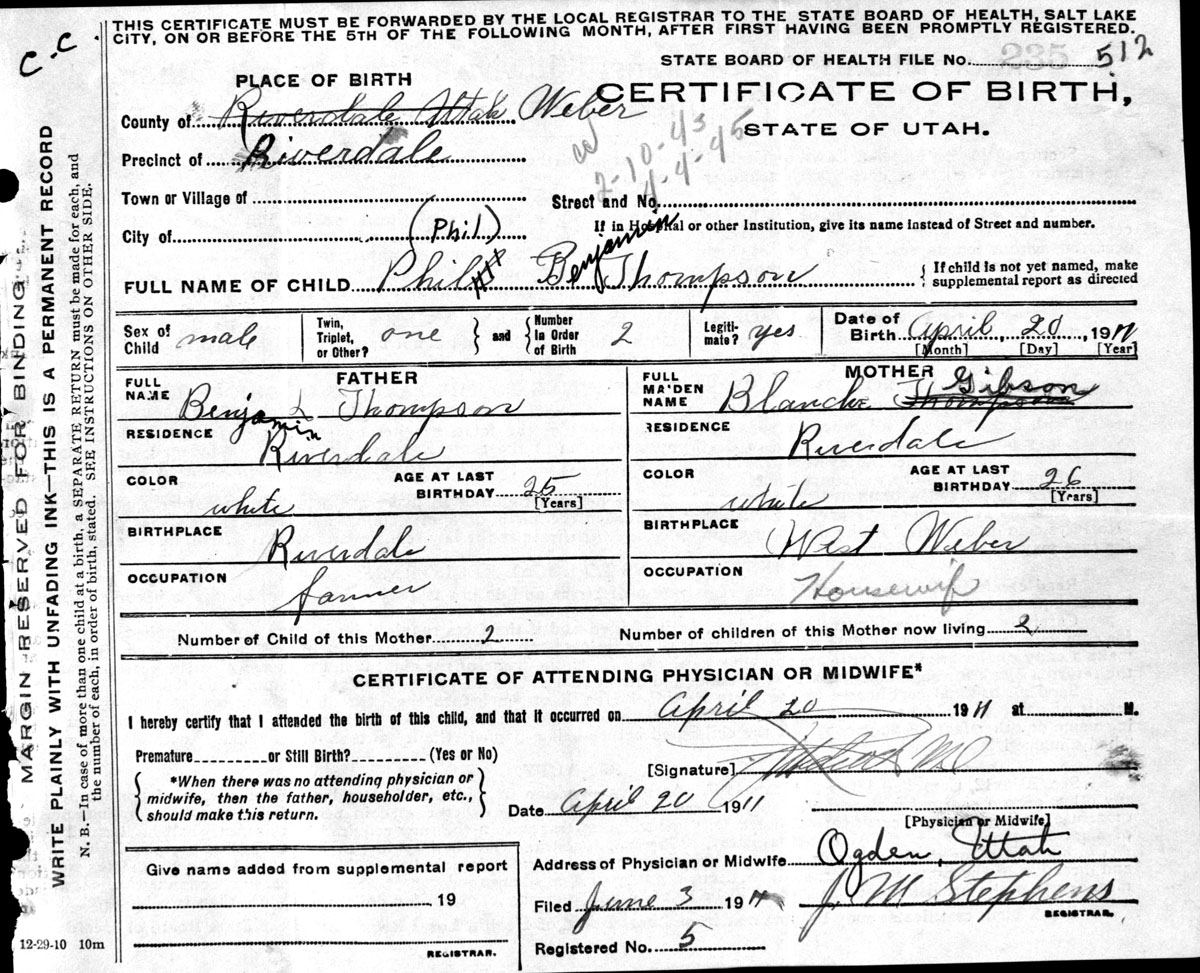 THIS CERTIFICATE MUST BE FORWARDED BY THE LOCAL REGISTRAR TO THE STATE BOARD OF HEALTH, SALT LAKE
CITY, ON OR BEFORE THE 5TH OF THE FOLLOWING MONTH, AFTER FIRST HAVING BEEN PROMPTLY REGISTERED.
C.C.
STATE BOARD OF HEALTH FILE No. 235 512
PLACE OF BIRTH
CERTIFICATE OF BIRTH,
STATE OF UTAH.
County of Riverdale Utah Weber
7-10-43
4-4-45
Precinct of Riverdale
Town or Village of
Street and No.
City of
If in Hospital or other Institution, give its name instead of Street and number.
(Phil)
Benjamin
FULL NAME OF CHILD Phil Thompson
{ If child is not yet named, make
supplemental report as directed
Sex of Child male
Twin, Triplet, or Other? one
and
Number In Order of Birth 2
Legiti-mate? yes
Date of Birth April 20, 1911
[Month] [Day] [Year]
FATHER
FULL NAME Benjamin L Thompson
RESIDENCE Riverdale
COLOR white
AGE AT LAST BIRTHDAY 25
[Years]
BIRTHPLACE Riverdale
OCCUPATION farmer
MOTHER
FULL MAIDEN NAME Blanche Thompson Gibson
RESIDENCE Riverdale
COLOR white
AGE AT LAST BIRTHDAY 26
[Years]
BIRTHPLACE West Weber
OCCUPATION Housewife
Number of Child of this Mother 2
Number of children of this Mother now living 2
CERTIFICATE OF ATTENDING PHYSICIAN OR MIDWIFE*
I hereby certify that I attended the birth of this child, and that it occurred on April 20 1911 at M.
Premature or Still Birth? (Yes or No)
{ *When there was no attending physician or
midwife, then the father, householder, etc.,
should make this return. }
[Signature] MD
Date April 20 1911
[Physician or Midwife]
Address of Physician or Midwife Ogden, Utah
Give name added from supplemental report
19
REGISTRAR.
Filed June 3 1911
J. M Stephens
REGISTRAR.
Registered No. 5
12-29-10 10m
MARGIN RESERVED FOR BINDING
WRITE PLAINLY WITH UNFADING INK—THIS IS A PERMANENT RECORD
N. B.—In case of more than one child at a birth, a SEPARATE RETURN must be made for each, and
the number of each, in order of birth, stated. SEE INSTRUCTIONS ON OTHER SIDE.